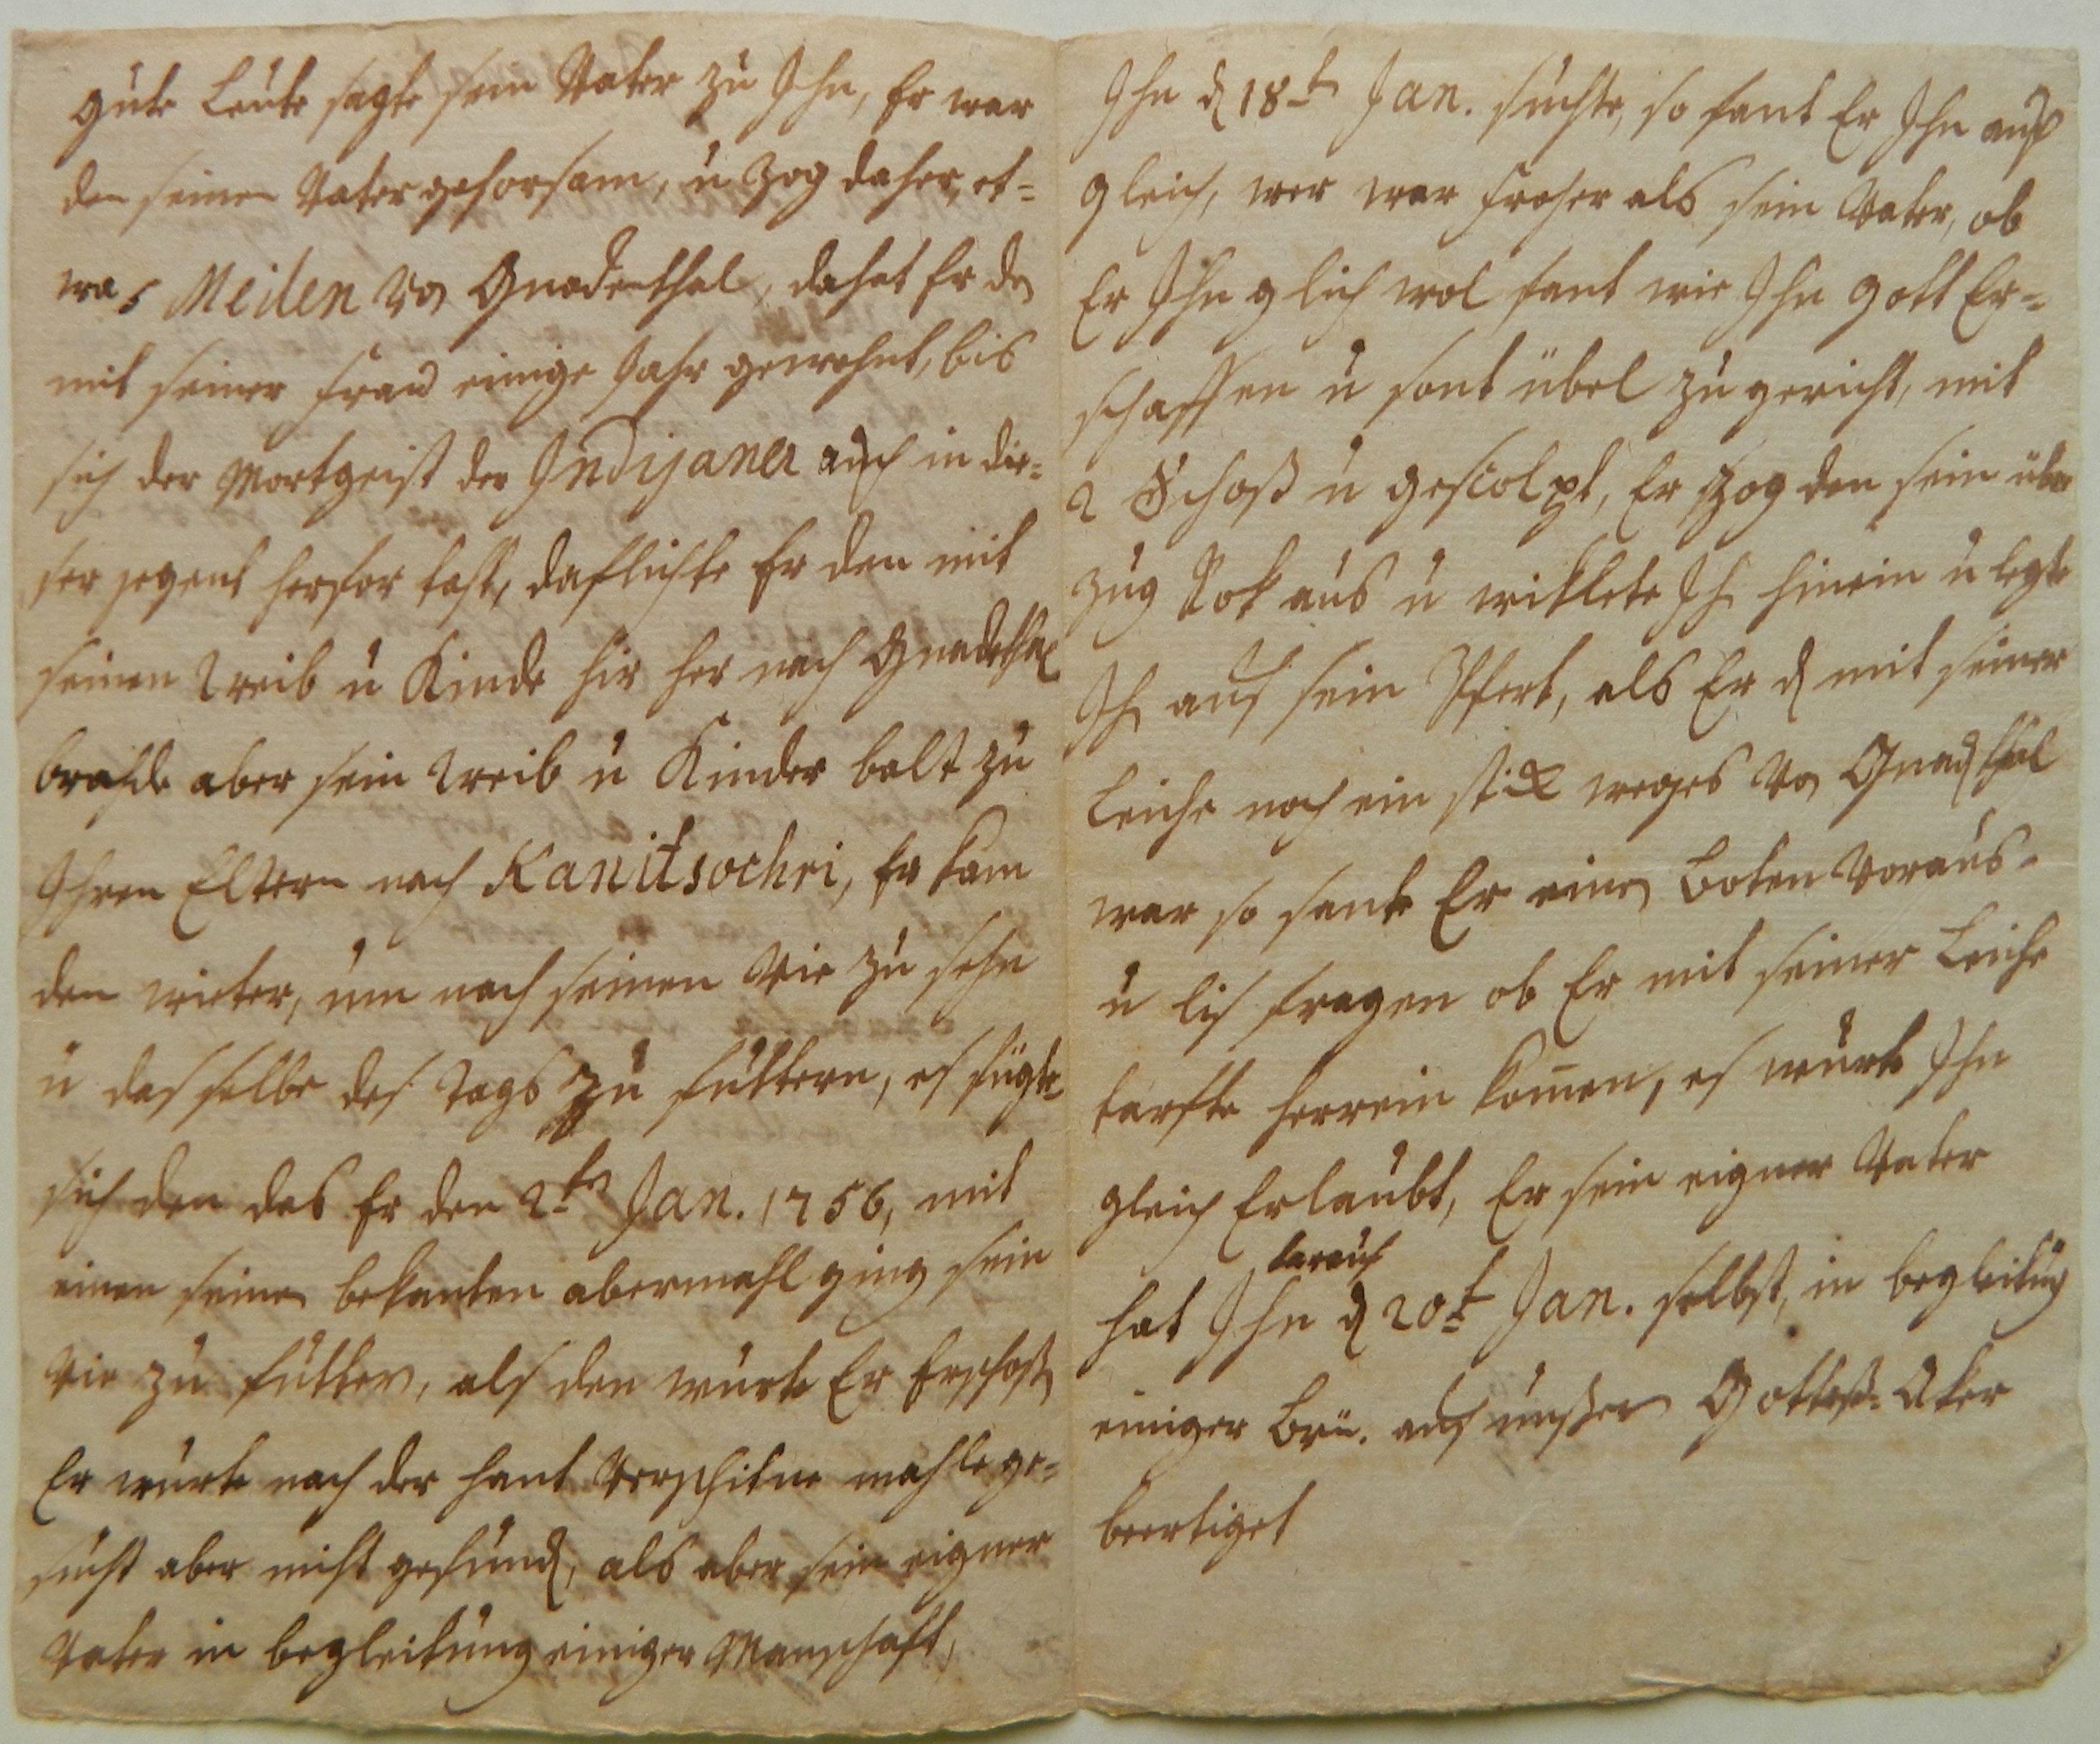 gute Leute sagte sein Vater zu Ihn, Er war
den seinen Vater gehorsam, u zog daher, et=
wa 5 Meilen von Gnadenthal, da hat Er den
mit seiner Frau einige Jahr gewohnt, bis
sich der Mortgeist der Indijaner auch in die=
ser gegent herfor taht, da flichte Er den mit
seinen Weib u Kinder hir her nach Gnadethal
brachde aber sein Weib u Kinder balt zu
Ihren Eltern nach Kanitsochri, Er kam
den winter, um nach seinen Vie zu sehn
u dasselbe des Tags zu futtern, es fügte
sich den das Er den 2ten Jan. 1756, mit
einen seiner bekanten abermahl ging sein
Vie zu futtern, als den wurte Er Erschossen
Er wurte nach der Hant Verschitne mahle ge=
sucht aber nicht gefunden, als aber sein eigner
Vater in begleitung einiger Manschaft,
Ihn d 18t Jan. suchte, so fant Er Ihn auch
gleich, wer war froher als sein Vater, ob
Er Ihn glich wol fant wie Ihn Gott Er=
schaffen u sont übel zu gericht, mit
2 Schoß u gescolpt, Er zog den sein über
zug Rok aus u wiklete Ihn hinein u legte
Ihn auf sein Pfert, als Er den mit seiner
Leiche noch ein stik weges von Gnadenthal
war so sante Er einen Boten Voraus
u lis fragen ob Er mit seiner Leiche
tarfte herrein komen, es wurte Ihn
gleich Erlaubt, Er sein eigner Vater
darauf
hat Ihn d 20t Jan. selbst, in begleitung
einiger Brü. auf unßern Gotteß=Aker
beertiget